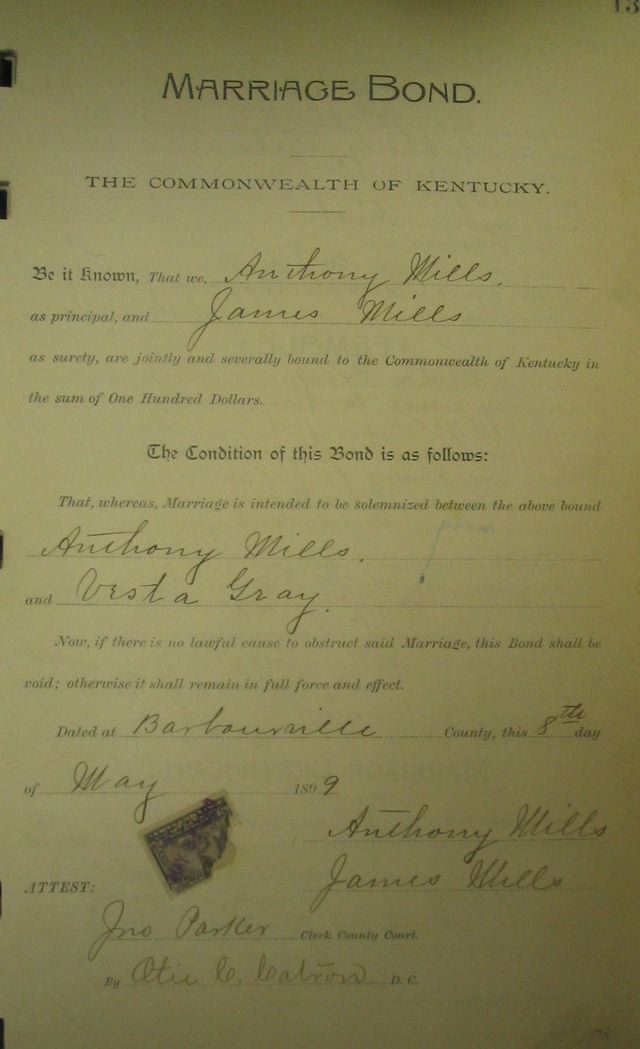 13
MARRIAGE BOND.
THE COMMONWEALTH OF KENTUCKY.
Be it Known, That we, Anthony Mills,
as principal, and James Mills
as surety, are jointly and severally bound to the Commonwealth of Kentucky in
the sum of One Hundred Dollars.
The Condition of this Bond is as follows:
That, whereas, Marriage is intended to be solemnized between the above bound
Anthony Mills,
and Vesta Gray.
Now, if there is no lawful cause to obstruct said Marriage, this Bond shall be
void; otherwise it shall remain in full force and effect.
Dated at Barbourville County, this 8th day
of May 1899
Anthony Mills
ATTEST: James Mills
Jno Parker Clerk County Court.
By Otis C. Catron D. C.